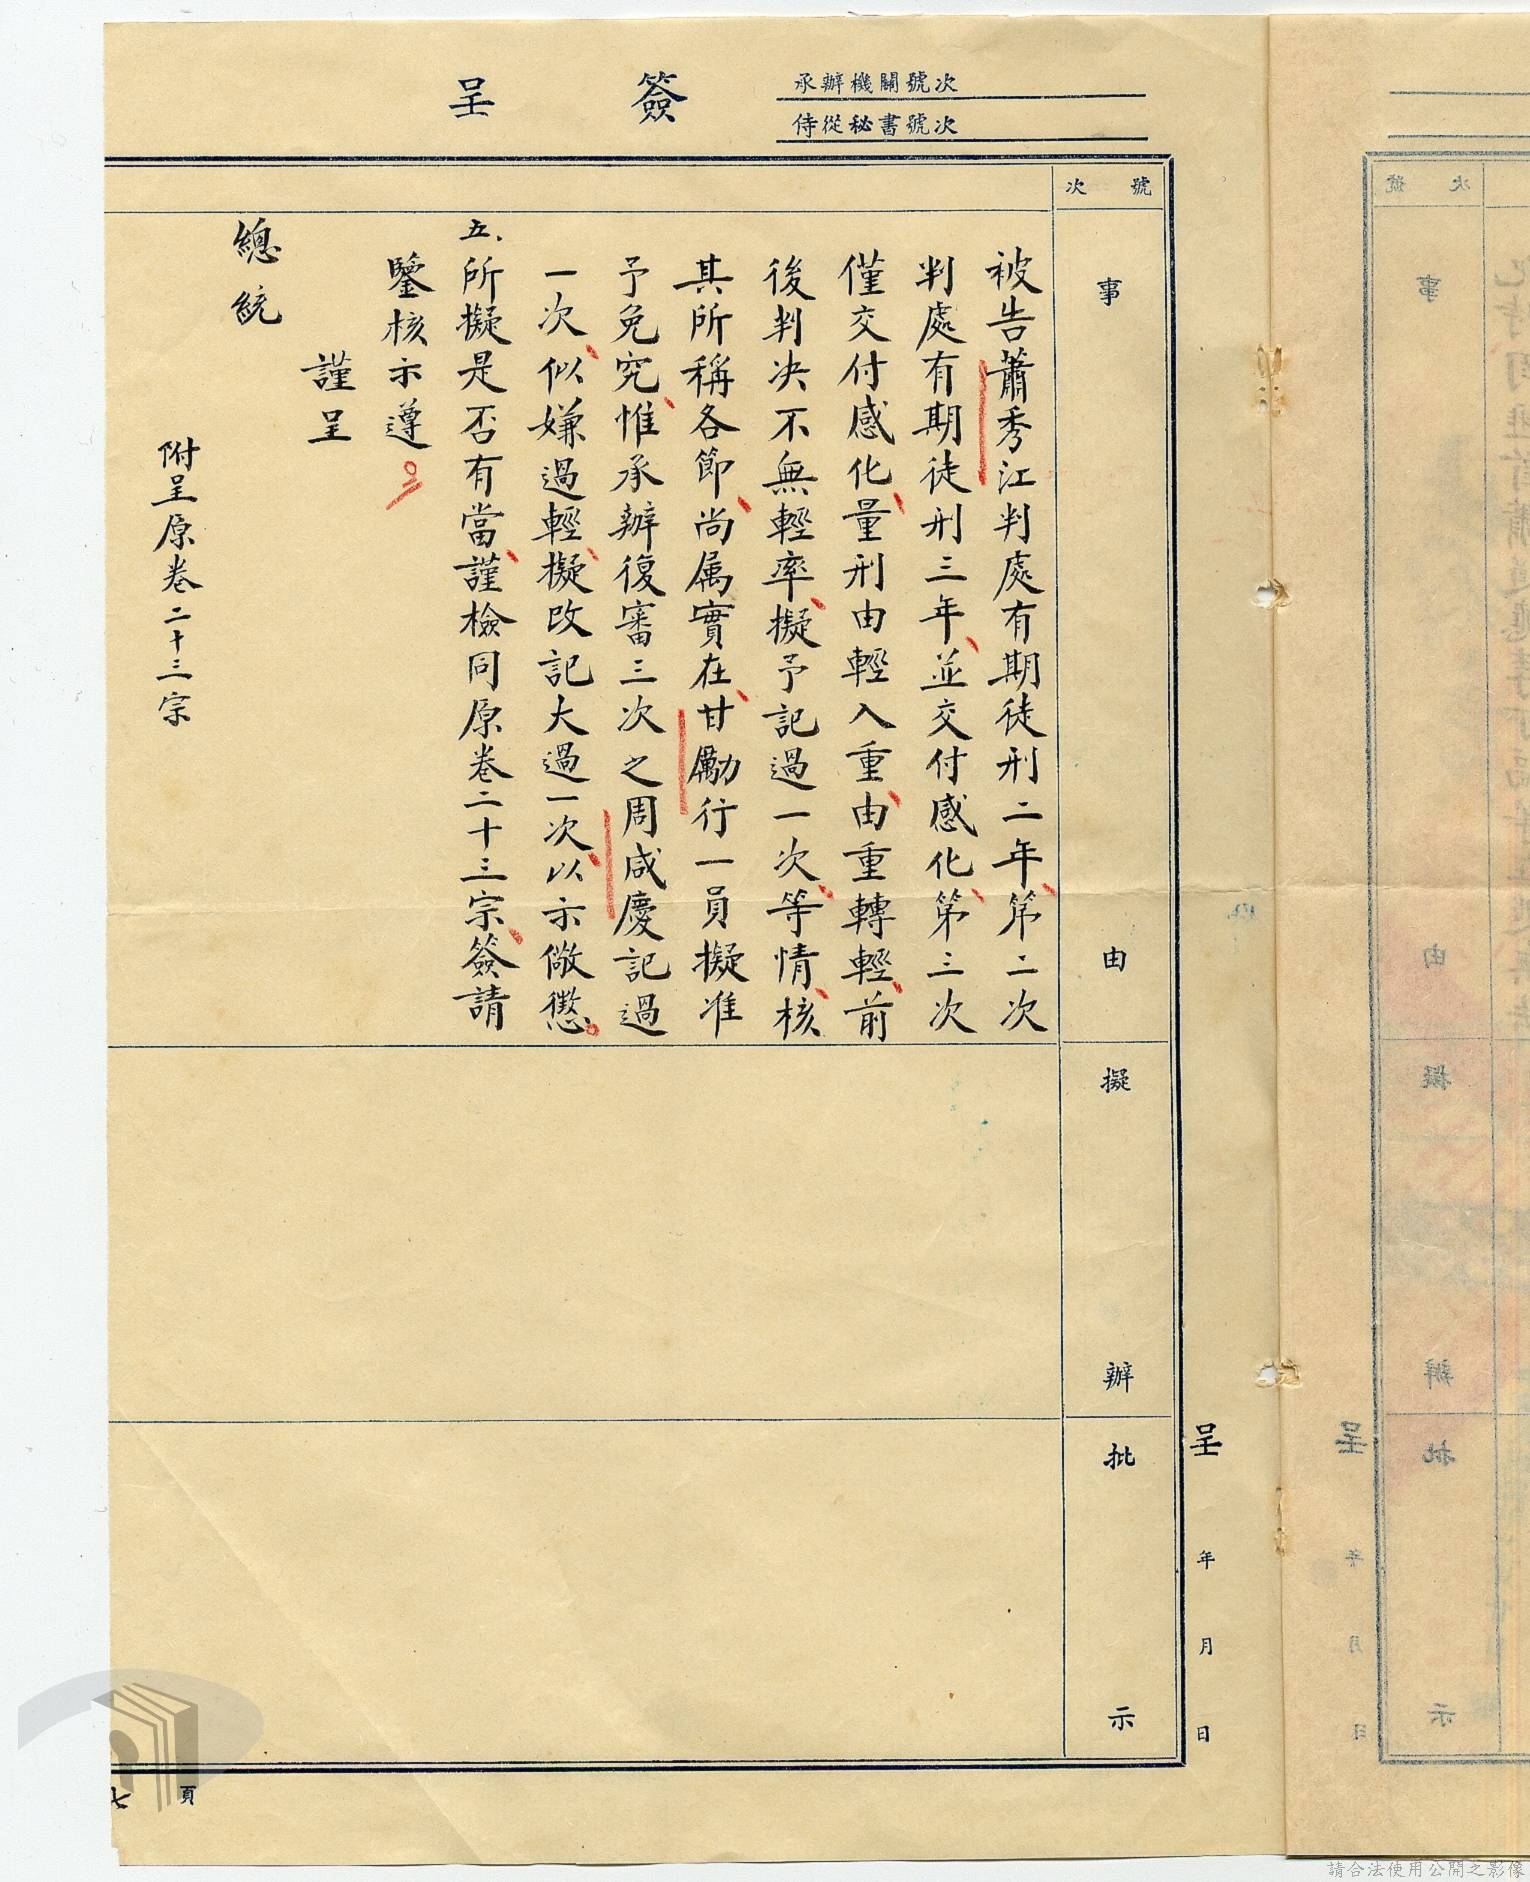 簽呈
承辦機關號次
侍從秘書號次
號次
事由
擬辦
批示
被告蕭秀江判處有期徒刑二年、第二次
判處有期徒刑三年、並交付感化、第三次
僅交付感化、量刑由輕入重、由重轉輕、前
後判決不無輕率、擬予記過一次、等情、核
其所稱各節、尚屬實在、甘勵行一員擬准
予免究、惟承辦復審三次之周咸慶記過
一次、似嫌過輕、擬改記大過一次、以示儆懲。
五、所擬是否有當、謹檢同原卷二十三宗、簽請
鑒核示遵。
謹呈
總統
附呈原卷二十三宗
呈 年 月 日
七頁
請合法使用公開之影像